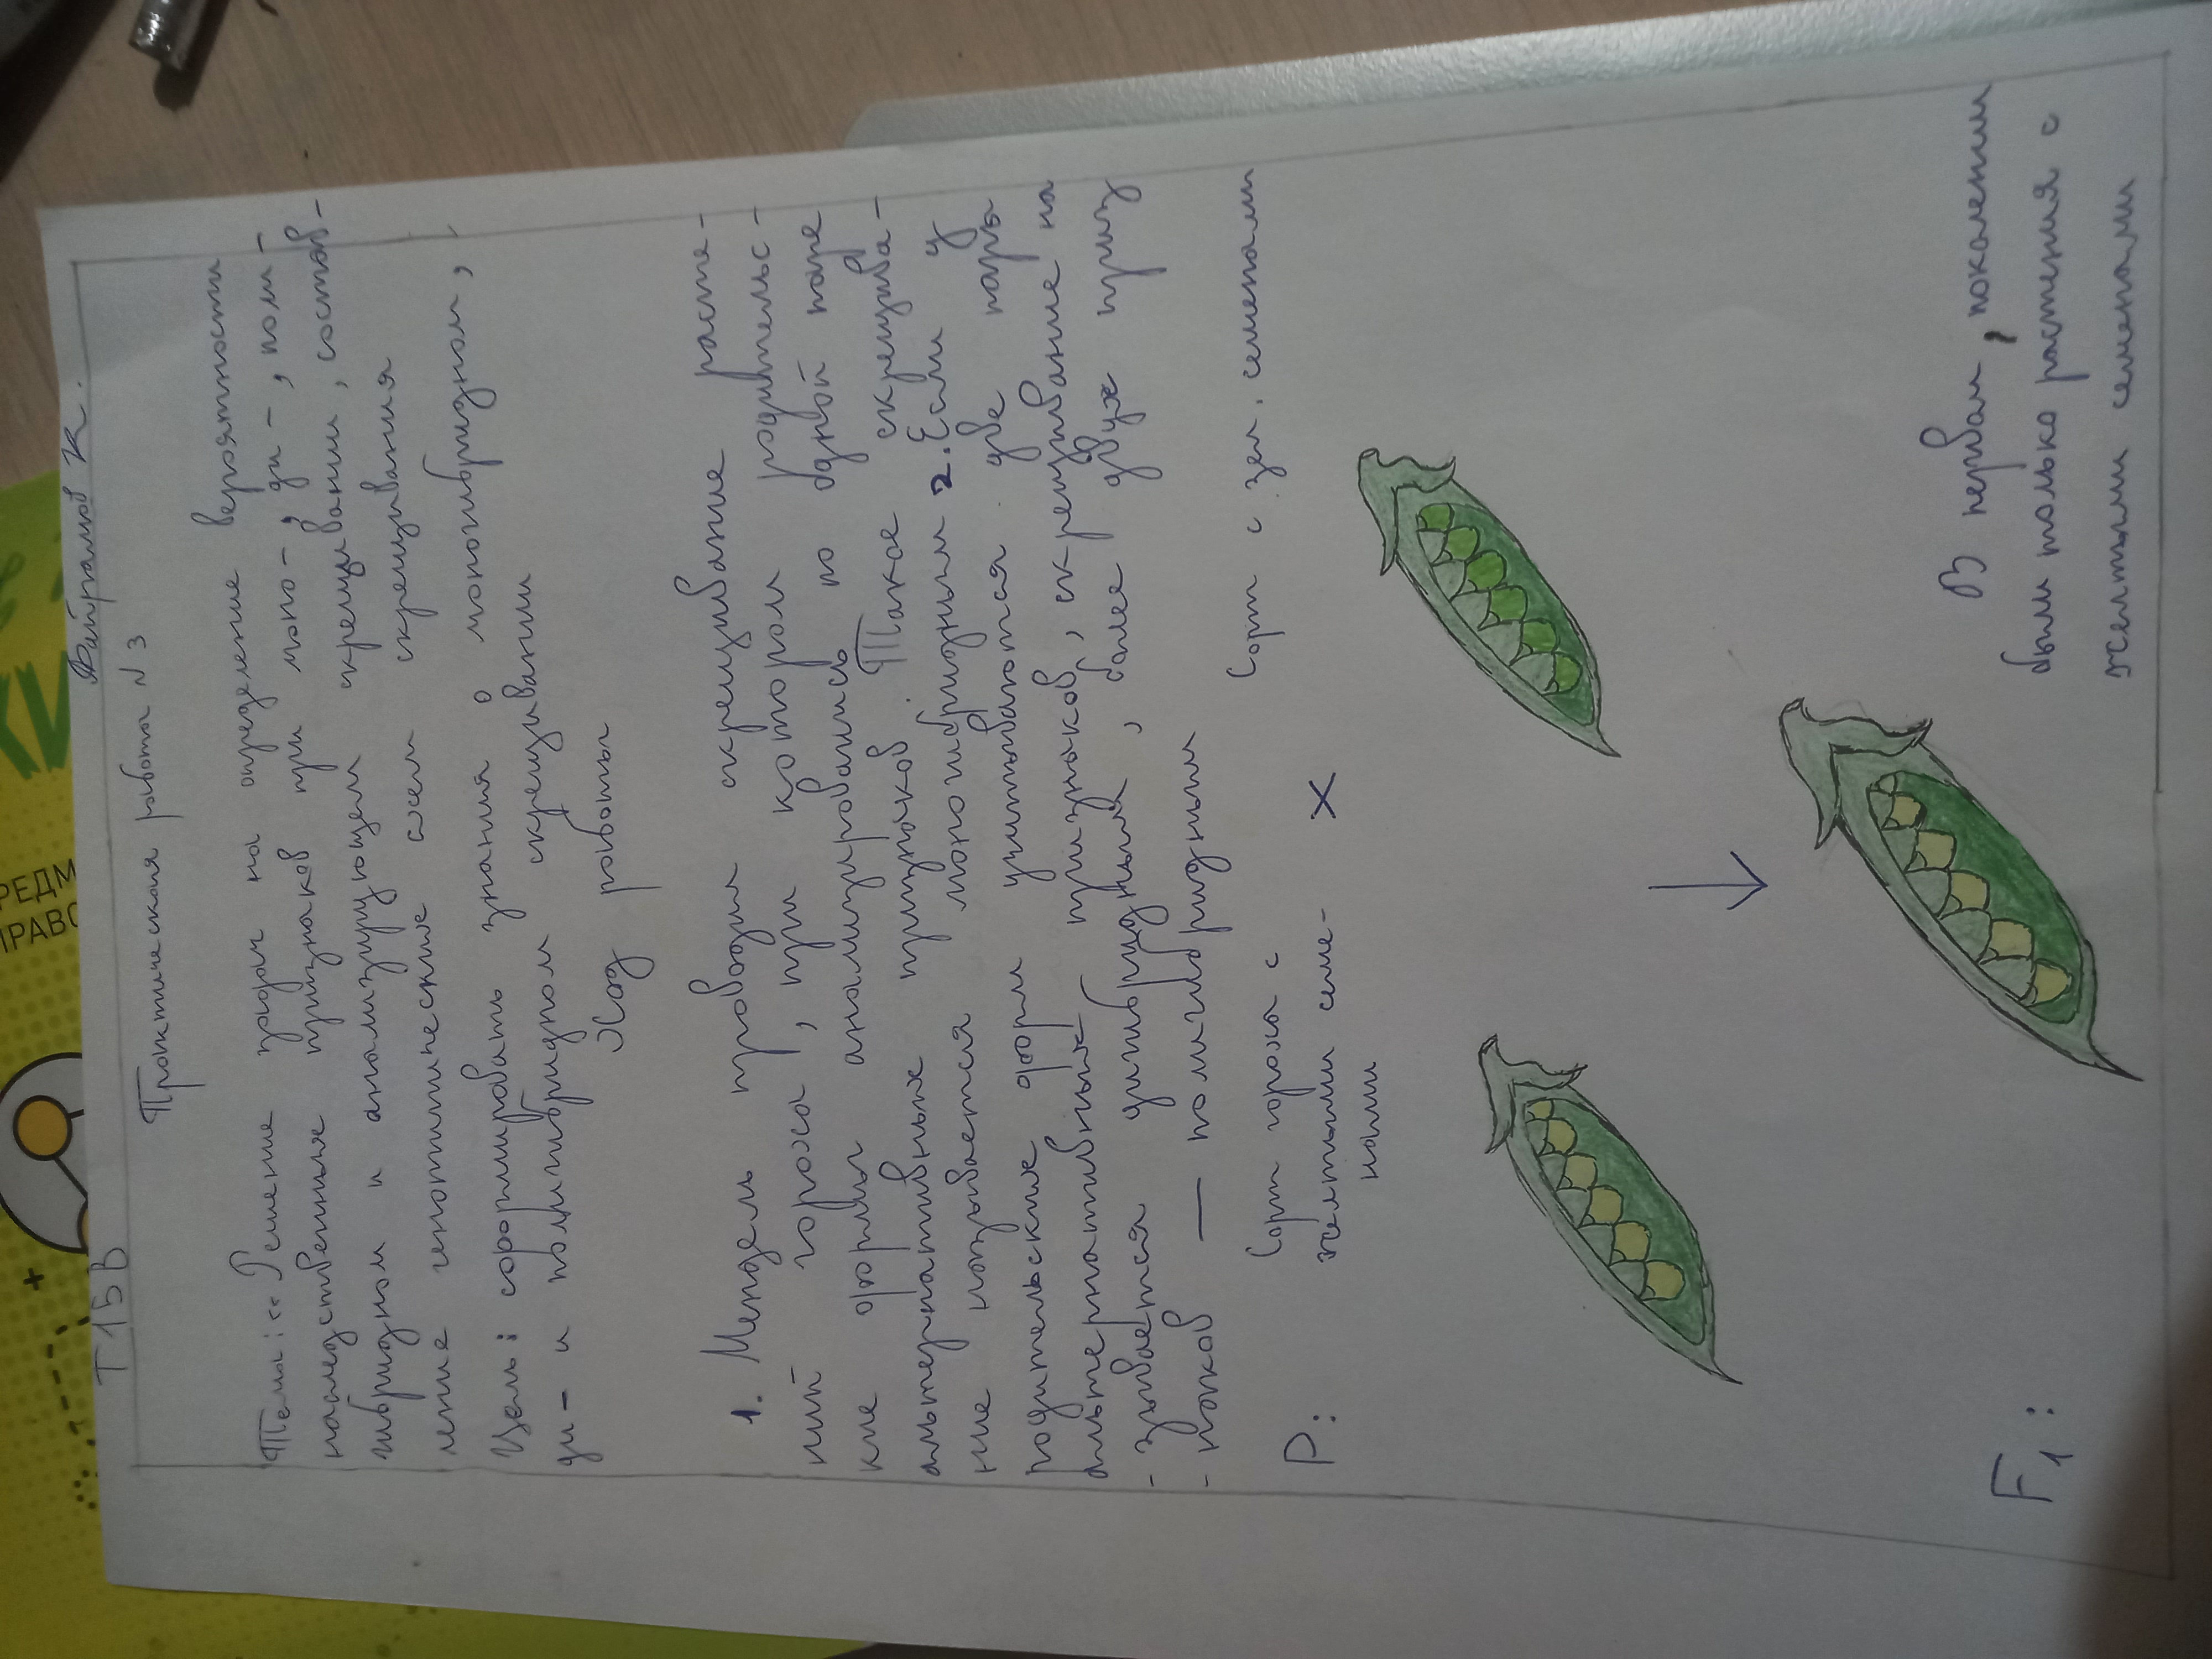 Т15В
Байрамов К.
Практическая работа №3
Тема: «Решение задач на определение вероятности
наследственных признаков при моно-, ди-, поли-
гибридном и анализирующем скрещивании, состав-
ление генотипических схем скрещивания
Цель: сформировать знания о моногибридном,
ди- и полигибридном скрещивании
Ход работы
1. Мендель проводил скрещивание расте-
ний гороха, при котором родительс-
кие формы анализировались по одной паре
альтернативных признаков. Такое скрещива-
ние называется моногибридным 2. Если у
родительских форм учитываются две пары
альтернативных признаков, скрещивание на
- зывается дигибридным, более двух приз
- наков — полигибридным
P:
Сорт гороха с
желтыми семе-
нами
X
Сорт с зел. семенами
F1:
В первом, поколении
были только растения с
желтыми семенами
РЕДМ
ПРАВО